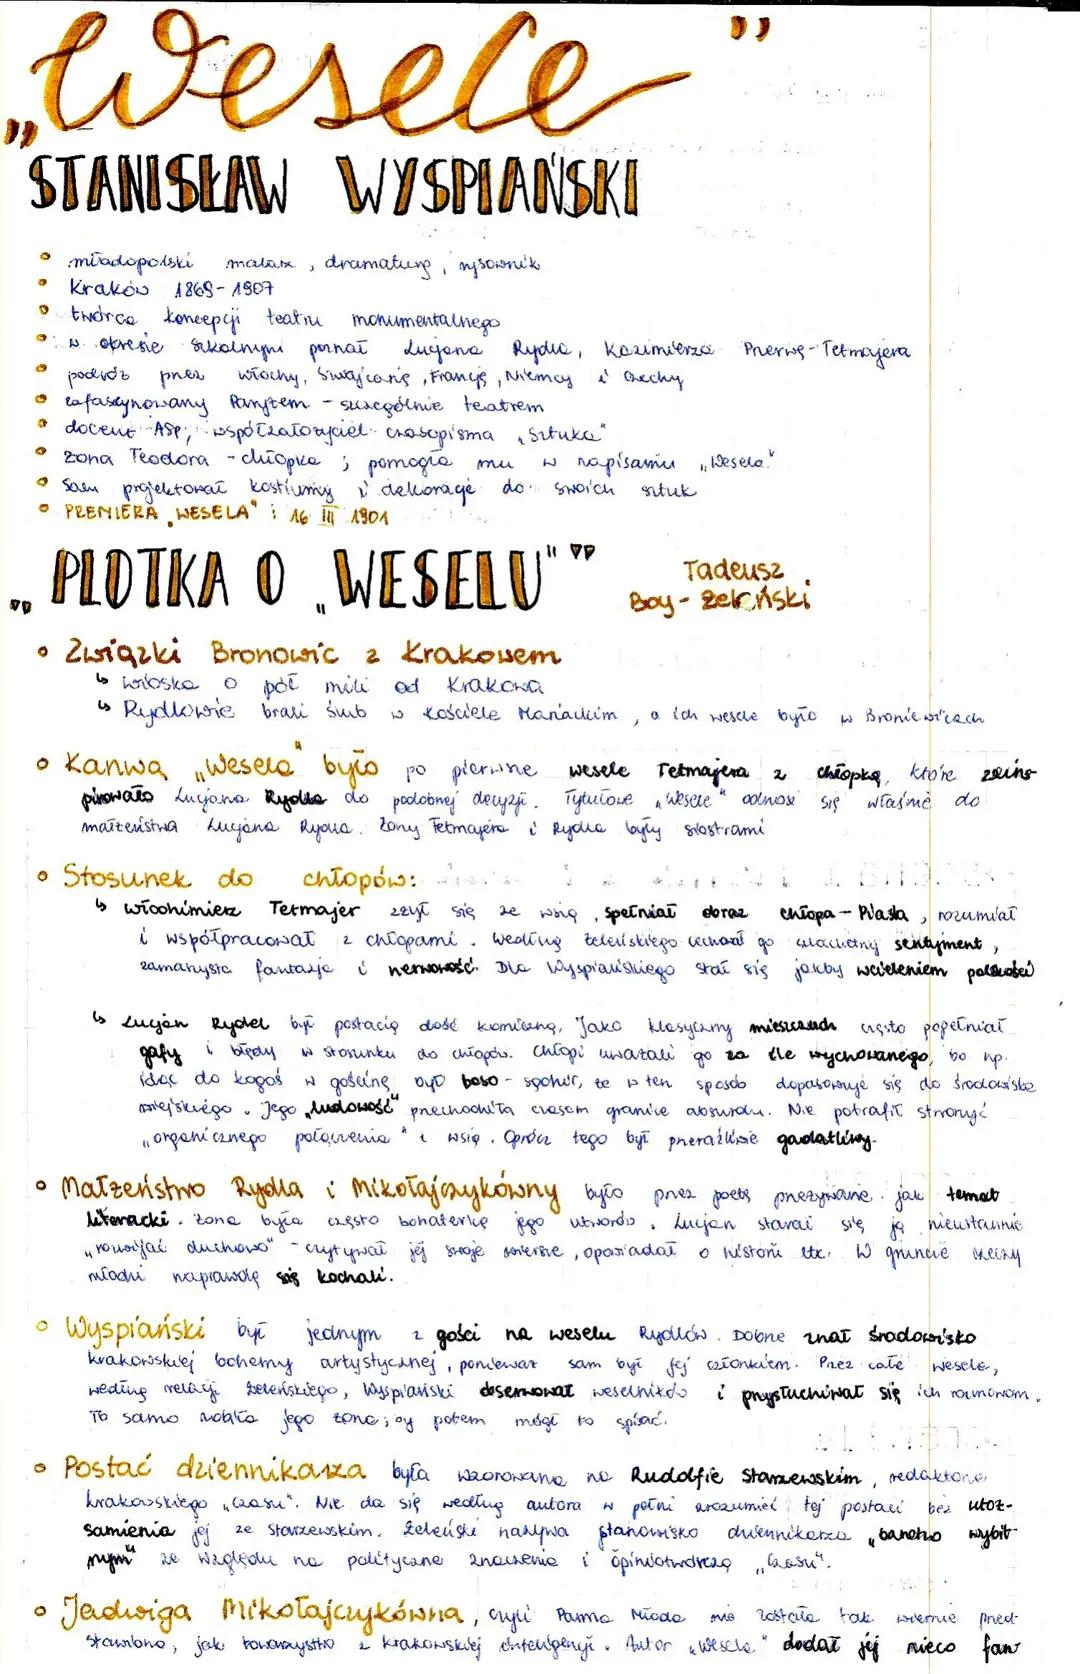 „Wesele”
STANISŁAW WYSPIAŃSKI
• młodopolski malarz, dramaturg, rysownik
• Kraków 1869-1907
• twórca koncepcji teatru monumentalnego
• w okresie szkolnym poznał Lucjana Rydla, Kazimierza Przerwę-Tetmajera
• podróż przez Włochy, Szwajcarię, Francję, Niemcy i Czechy
• zafascynowany Paryżem - szczególnie teatrem
• docent ASP; współzałożyciel czasopisma „Sztuka"
• żona Teodora - chłopka; pomogła mu w napisaniu „Wesela"
• Sam projektował kostiumy i dekoracje do swoich sztuk
• PREMIERA „WESELA" : 16 III 1901
„PLOTKA O „WESELU"” Tadeusz
Boy-Żeleński
• Związki Bronowic z Krakowem
↳ wioska o pół mili od Krakowa
↳ Rydlowie brali ślub w kościele Mariackim, a ich wesele było w Broniewicach
• Kanwą „Wesela" było po pierwsze wesele Tetmajera z chłopką, które zains-
pirowało Lucjana Rydla do podobnej decyzji. Tytułowe „Wesele" odnosi się właśnie do
małżeństwa Lucjana Rydla. Żony Tetmajera i Rydla były siostrami
• Stosunek do chłopów:
↳ Włodzimierz Tetmajer zżył się ze wsią, spełniał obraz chłopa-Piasta, rozumiał
i współpracował z chłopami. Według Żeleńskiego cechował go szlachetny sentyment,
zamaszysta fantazja i nerwowość. Dla Wyspiańskiego stał się jakby wcieleniem polskości
↳ Lucjan Rydel był postacią dość komiczną. Jako klasyczny mieszczuch często popełniał
gafy i błędy w stosunku do chłopów. Chłopi uważali go za źle wychowanego, bo np.
idąc do kogoś w gościnę, był boso - sądził, że w ten sposób dopasowuje się do środowiska
wiejskiego. Jego „ludowość" przechodziła czasem granice absurdu. Nie potrafił stworzyć
„organicznego połączenia" z wsią. Oprócz tego był przeraźliwie gadatliwy.
• Małżeństwo Rydla i Mikołajczykówny było przez poetę przeżywane jak temat
literacki. Żona była często bohaterką jego utworów. Lucjan starał się ją nieustannie
„rozwijać duchowo" - czytywał jej swoje wiersze, opowiadał o historii itc. W gruncie rzeczy
młodzi naprawdę się kochali.
• Wyspiański był jednym z gości na weselu Rydlów. Dobrze znał środowisko
krakowskiej bohemy artystycznej, ponieważ sam był jej członkiem. Przez całe wesele,
według relacji Żeleńskiego, Wyspiański obserwował weselników i przysłuchiwał się ich rozmowom.
To samo robiła jego żona; by potem mógł to spisać.
• Postać dziennikarza była wzorowana na Rudolfie Starzewskim, redaktorze
krakowskiego „Czasu". Nie da się według autora w pełni zrozumieć tej postaci bez utoż-
samienia jej ze Starzewskim. Żeleński nazywa stanowisko dziennikarza „bardzo wybit-
nym" ze względu na polityczne znaczenie i opiniotwórczą „Czasu".
• Jadwiga Mikołajczykówna, czyli Panna Młoda nie została tak wiernie przed-
stawiona, jak towarzystwo z krakowskiej inteligencji. Autor „Wesela" dodał jej nieco fan